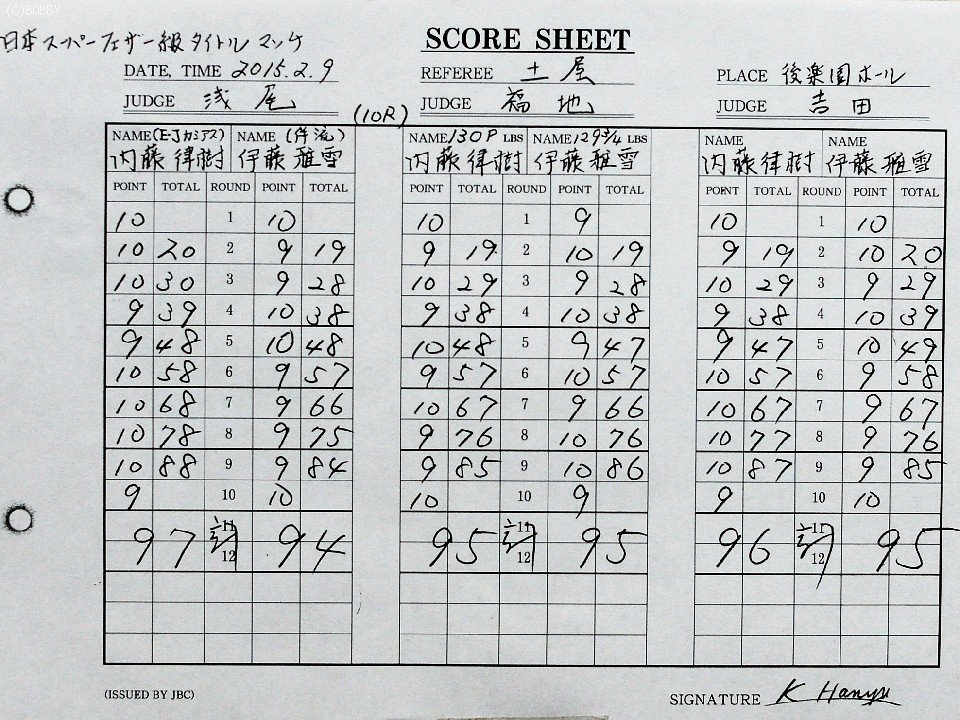 (C)BOBBY
日本スーパーフェザー級タイトルマッチ
SCORE SHEET
DATE, TIME 2015.2.9 REFEREE 土屋 PLACE 後楽園ホール
JUDGE 浅尾 (10R) JUDGE 福地 JUDGE 吉田
NAME (E-Jカシアス) NAME (伴流) NAME 130P LBS NAME 129¾ LBS NAME NAME
内藤律樹 伊藤雅雪 内藤律樹 伊藤雅雪 内藤律樹 伊藤雅雪
POINT TOTAL ROUND POINT TOTAL POINT TOTAL ROUND POINT TOTAL POINT TOTAL ROUND POINT TOTAL
10 1 10 10 1 9 10 1 10
10 20 2 9 19 9 19 2 10 19 9 19 2 10 20
10 30 3 9 28 10 29 3 9 28 10 29 3 9 29
9 39 4 10 38 9 38 4 10 38 9 38 4 10 39
9 48 5 10 48 10 48 5 9 47 9 47 5 10 49
10 58 6 9 57 9 57 6 10 57 10 57 6 9 58
10 68 7 9 66 10 67 7 9 66 10 67 7 9 67
10 78 8 9 75 9 76 8 10 76 10 77 8 9 76
10 88 9 9 84 9 85 9 10 86 10 87 9 9 85
9 10 10 10 10 9 9 10 10
11 11 11
97 計 94 95 計 95 96 計 95
12 12 12
(ISSUED BY JBC) SIGNATURE K Hanyu